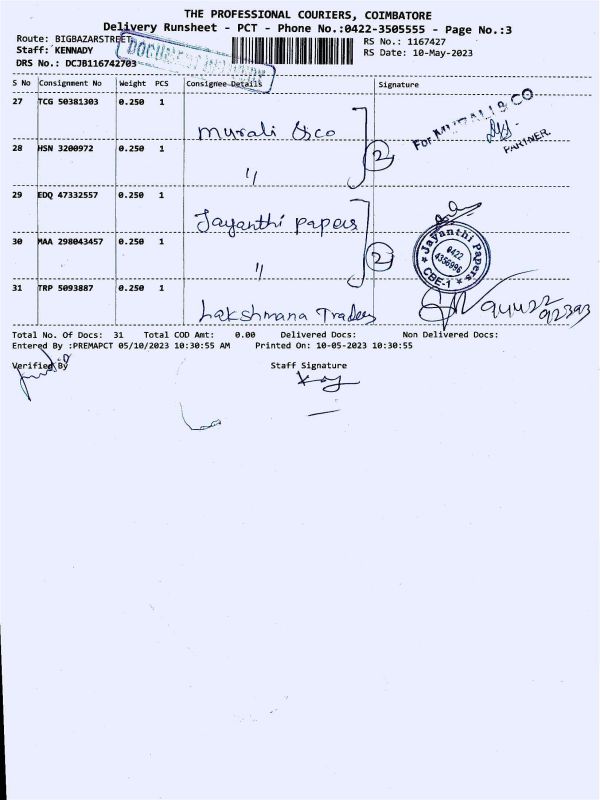 THE PROFESSIONAL COURIERS, COIMBATORE
Delivery Runsheet - PCT - Phone No.:0422-3505555 - Page No.:3
Route: BIGBAZARSTREET RS No.: 1167427
Staff: KENNADY RS Date: 10-May-2023
DRS No.: DCJB116742703
DOCUMENT
S No Consignment No Weight PCS Consignee Details Signature
27 TCG 50381303 0.250 1 Murali &co
For MURALI & CO
PARTNER
28 HSN 3200972 0.250 1 "
2
29 EDQ 47332557 0.250 1 Jayanthi papers
30 MAA 298043457 0.250 1 "
2
★ Jayanthi Papers ★ CBE-1
0422
4356996
31 TRP 5093887 0.250 1 Lakshmana Traders
Total No. Of Docs: 31 Total COD Amt: 0.00 Delivered Docs: Non Delivered Docs:
Entered By :PREMAPCT 05/10/2023 10:30:55 AM Printed On: 10-05-2023 10:30:55
Verified By Staff Signature